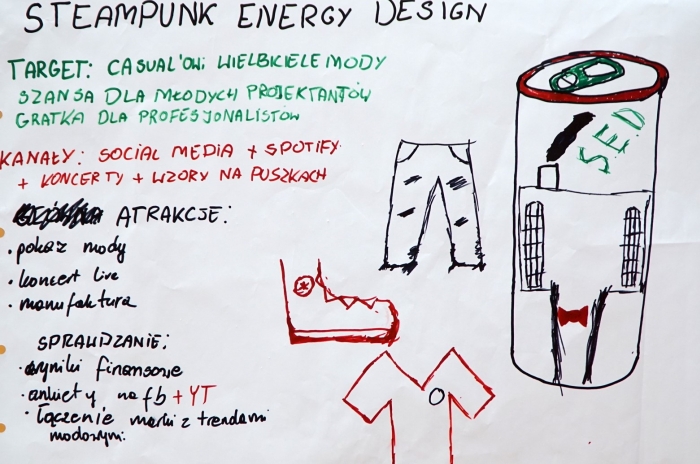 STEAMPUNK ENERGY DESIGN
TARGET: CASUAL'OWI WIELBICIELE MODY
SZANSA DLA MŁODYCH PROJEKTANTÓW
GRATKA DLA PROFESJONALISTÓW
KANAŁY: SOCIAL MEDIA + SPOTIFY
+ KONCERTY + WZORY NA PUSZKACH
ATRAKCJE:
• pokaz mody
• koncert live
• manufaktura
SPRAWDZANIE:
• wyniki finansowe
• ankiety na fb + YT
• łączenie marki z trendami
modowymi
SED